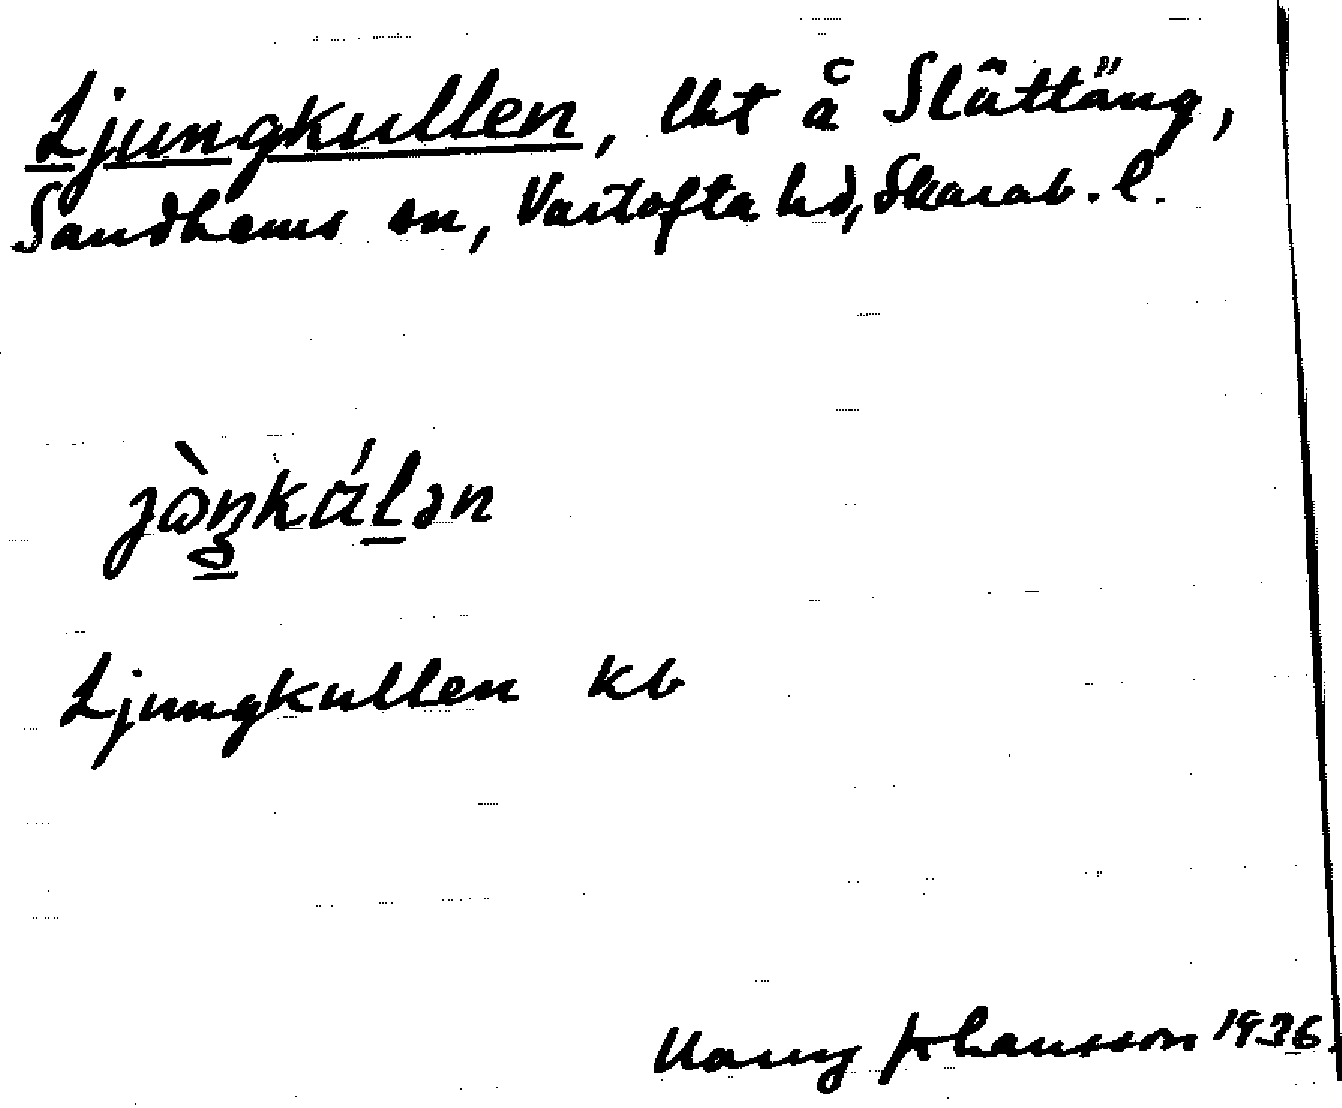 Ljungkullen, lht å Slättäng,
Sandhems sn, Vartofta hd, Skarab. l.
jὼŋkɑ́lən
Ljungkullen kb
Harry Johansson 1936.